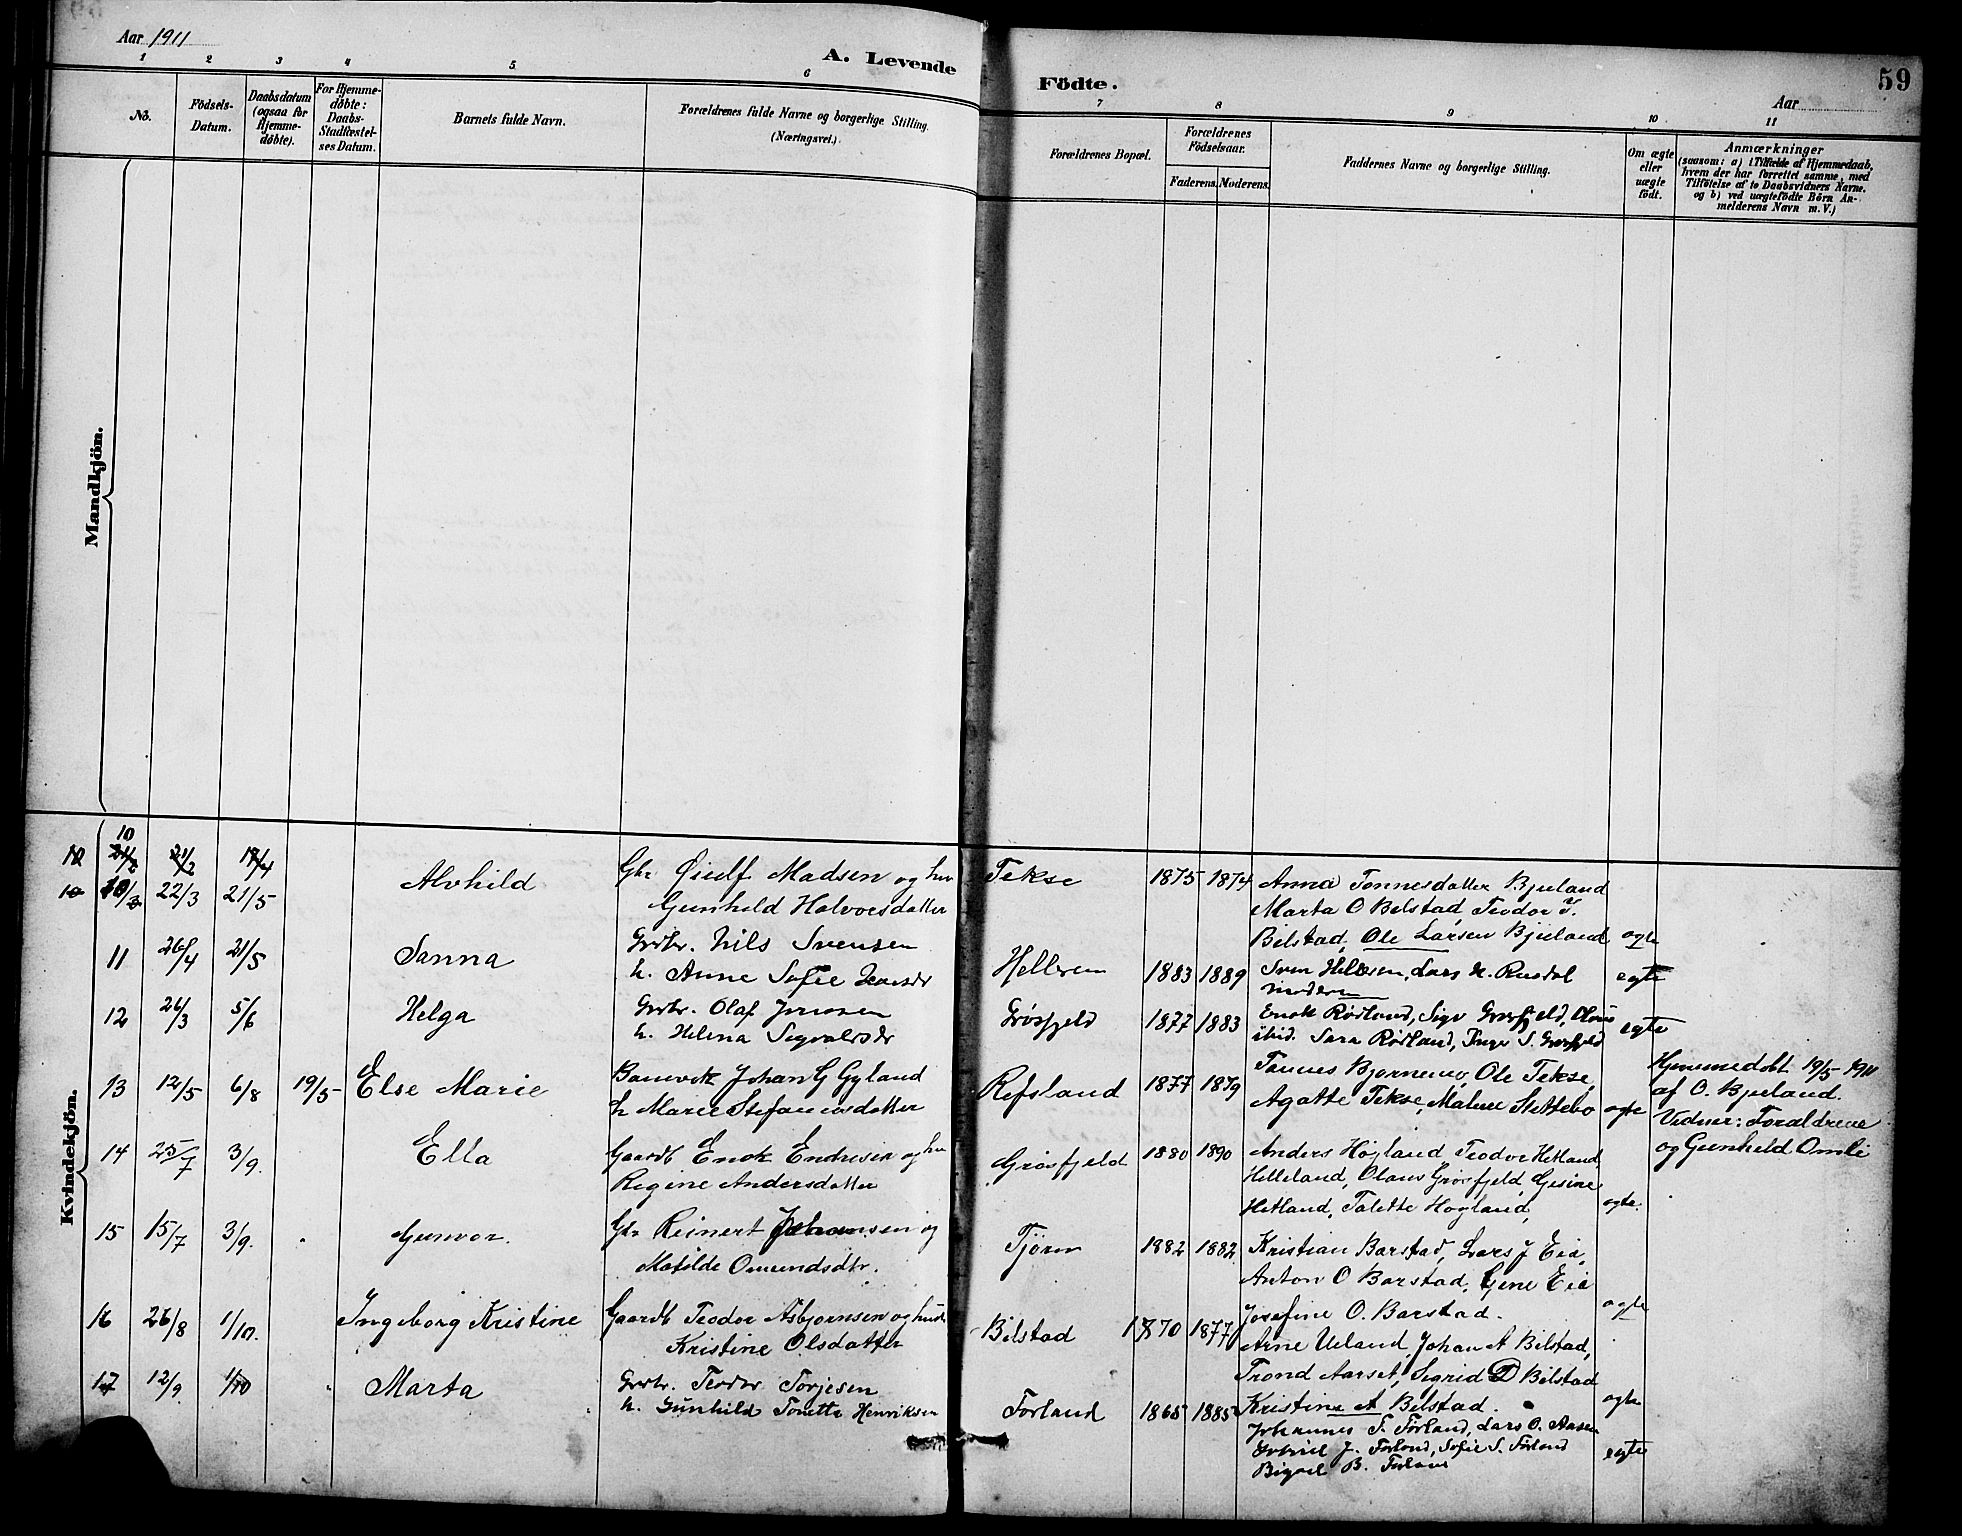 Aar 1911
A. Levende Födte.
59
Aar
1 2 3 4 5 6 7 8 9 10 11
No.
Födsels-Datum.
Daabsdatum (ogsaa for Hjemme-døbte).
For Hjemme-døbte: Daabs-Stadfæstel-ses Datum.
Barnets fulde Navn.
Forældrenes fulde Navne og borgerlige Stilling. (Næringsvei.)
Forældrenes Bopæl.
Forældrenes Födselsaar.
Faderens. Moderens.
Faddernes Navne og borgerlige Stilling.
Om ægte eller uægte födt.
Anmærkninger
(saasom: a) i Tilfælde af Hjemmedaab,
hvem der har forrettet samme, med
Tilföielse af to Daabsvidners Navne,
og b) ved uægtefödte Börn An-
melderens Navn m. V.)
Mandkjön.
Kvindekjön.
10 22/3 21/5 Alvhild Gbr Øiulf Madsen og hu Tekse 1875 1874 Anna Tonnesdatter Bjuland
Gunhild Halvorsdatter Marta O Bilstad, Teodor T.
Bilstad, Ole Larsen Bjuland ægte
11 26/4 21/5 Sanna Grbr. Nils Svensen Helleren 1883 1889 Sven Helleren, Lars N. Rusdal egte
h. Anne Sofie moderen
12 26/3 5/6 Helga Grbr. Olaf Jonssen Grøsfjeld 1877 1883 Enok Rødland, Sigv Grøsfjeld, Olaus egte
h. Helena Sigvaldsdr ibid. Sara Rødland, Inger S. Grøsfjeld
13 12/5 6/8 19/5 Else Marie Banevok Johan G Gyland Refsland 1877 1879 Tønnes Bjørnemo, Ole Tekse,
h Marie Stefanusdatter Agatte Tekse, Malene Slettebo ægte
Hjemmedøbt 19/5 1911
af O. Bjuland.
Vidner: Foraldrene
og Gunhild Omli
14 25/7 3/9. Ella Gaardb Enok Endresen og hu Grøsfjeld 1880 1890 Anders Høgland Teodor Hetland,
Regine Andersdatter Helleland, Olaus Grøsfjeld, Gesine
Hetland, Talette Høgland, ægte.
15 15/7 3/9. Gunvor. Gbr Reinert Johansen og Tjørn 1882 1882 Kristian Barstad, Lars J Eia,
Matilde Omundsdtr. Anton O Barstad, Gene Eia
Josefine O. Barstad. ægte
16 26/8 1/10. Ingeborg Kristine Gaardb Teodor Asbjørnsen og hust Bilstad 1870 1877 Arne Ueland, Johan A Bilstad,
Kristine Olsdatter Trond Aarset, Sigrid D Bilstad
Kristine A Bilstad. ægte
17 12/9 1/10 Marta Grbr. Teodor Torjesen Førland 1865 1885 Johannes T. Førland, Lars O. Aasen
h. Gunhild Tonette Henriksen J. Førland, Sofie S. Førland egte
B. Førland